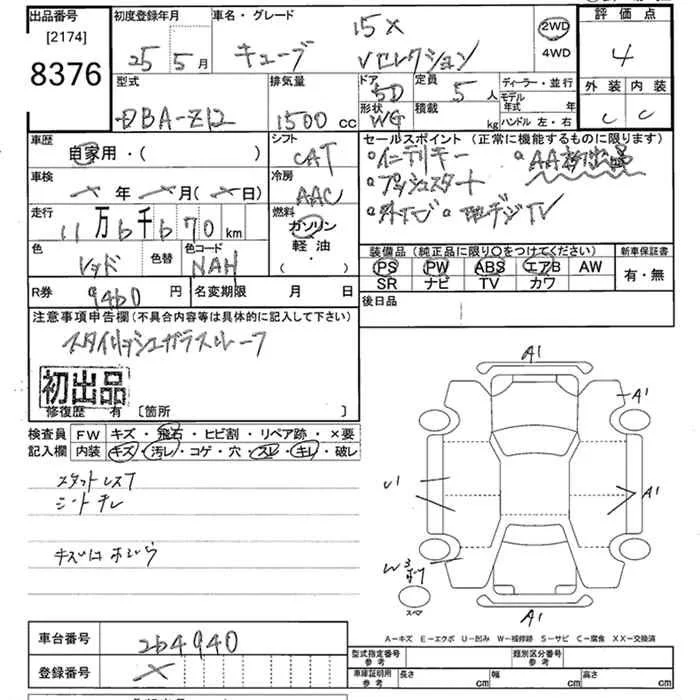 出品番号 初度登録年月 車名・グレード 評価点
[2174] 15X 2WD
8376 25 5月 キューブ Vセレクション 4WD 4
型式 排気量 ドア 定員 ディーラー・並行 外装 内装
5D 5人 モデル年式 年
DBA-Z12 1500cc 形状 積載 ハンドル 左・右 C C
WG kg
車歴 シフト セールスポイント (正常に機能するものに限ります)
自家用・( ) CAT ・インテリキー ・AA初出品
車検 冷房 ・プッシュスタート
×年×月(×日) AAC ・地デジTV
走行 燃料
11万6千670km ガソリン 装備品(純正品に限り○をつけてください) 新車保証書
色 色替 色コード 軽油 PS PW ABS エアB AW 有・無
レッド NAH ・( ) SR ナビ TV カワ
R券 9460円 名変期限 月 日 後日品
注意事項申告欄(不具合内容等は具体的に記入して下さい)
スタイリッシュガラスルーフ
A1
初出品
A1
修復歴 有 [箇所 ]
検査員 FW キズ・飛石・ヒビ割・リペア跡・×要
記入欄 内装 キズ・汚レ・コゲ・穴・スレ・キレ・破レ
U1
A1
シート
W3
スペア
A1
A-キズ E-エクボ U-凹み W-補修跡 S-サビ C-腐食 XX-交換済
車台番号 264940 型式指定番号 参考 類別区分番号 参考
登録番号 × 車庫証明用 参考 長さ cm 幅 cm 高さ cm